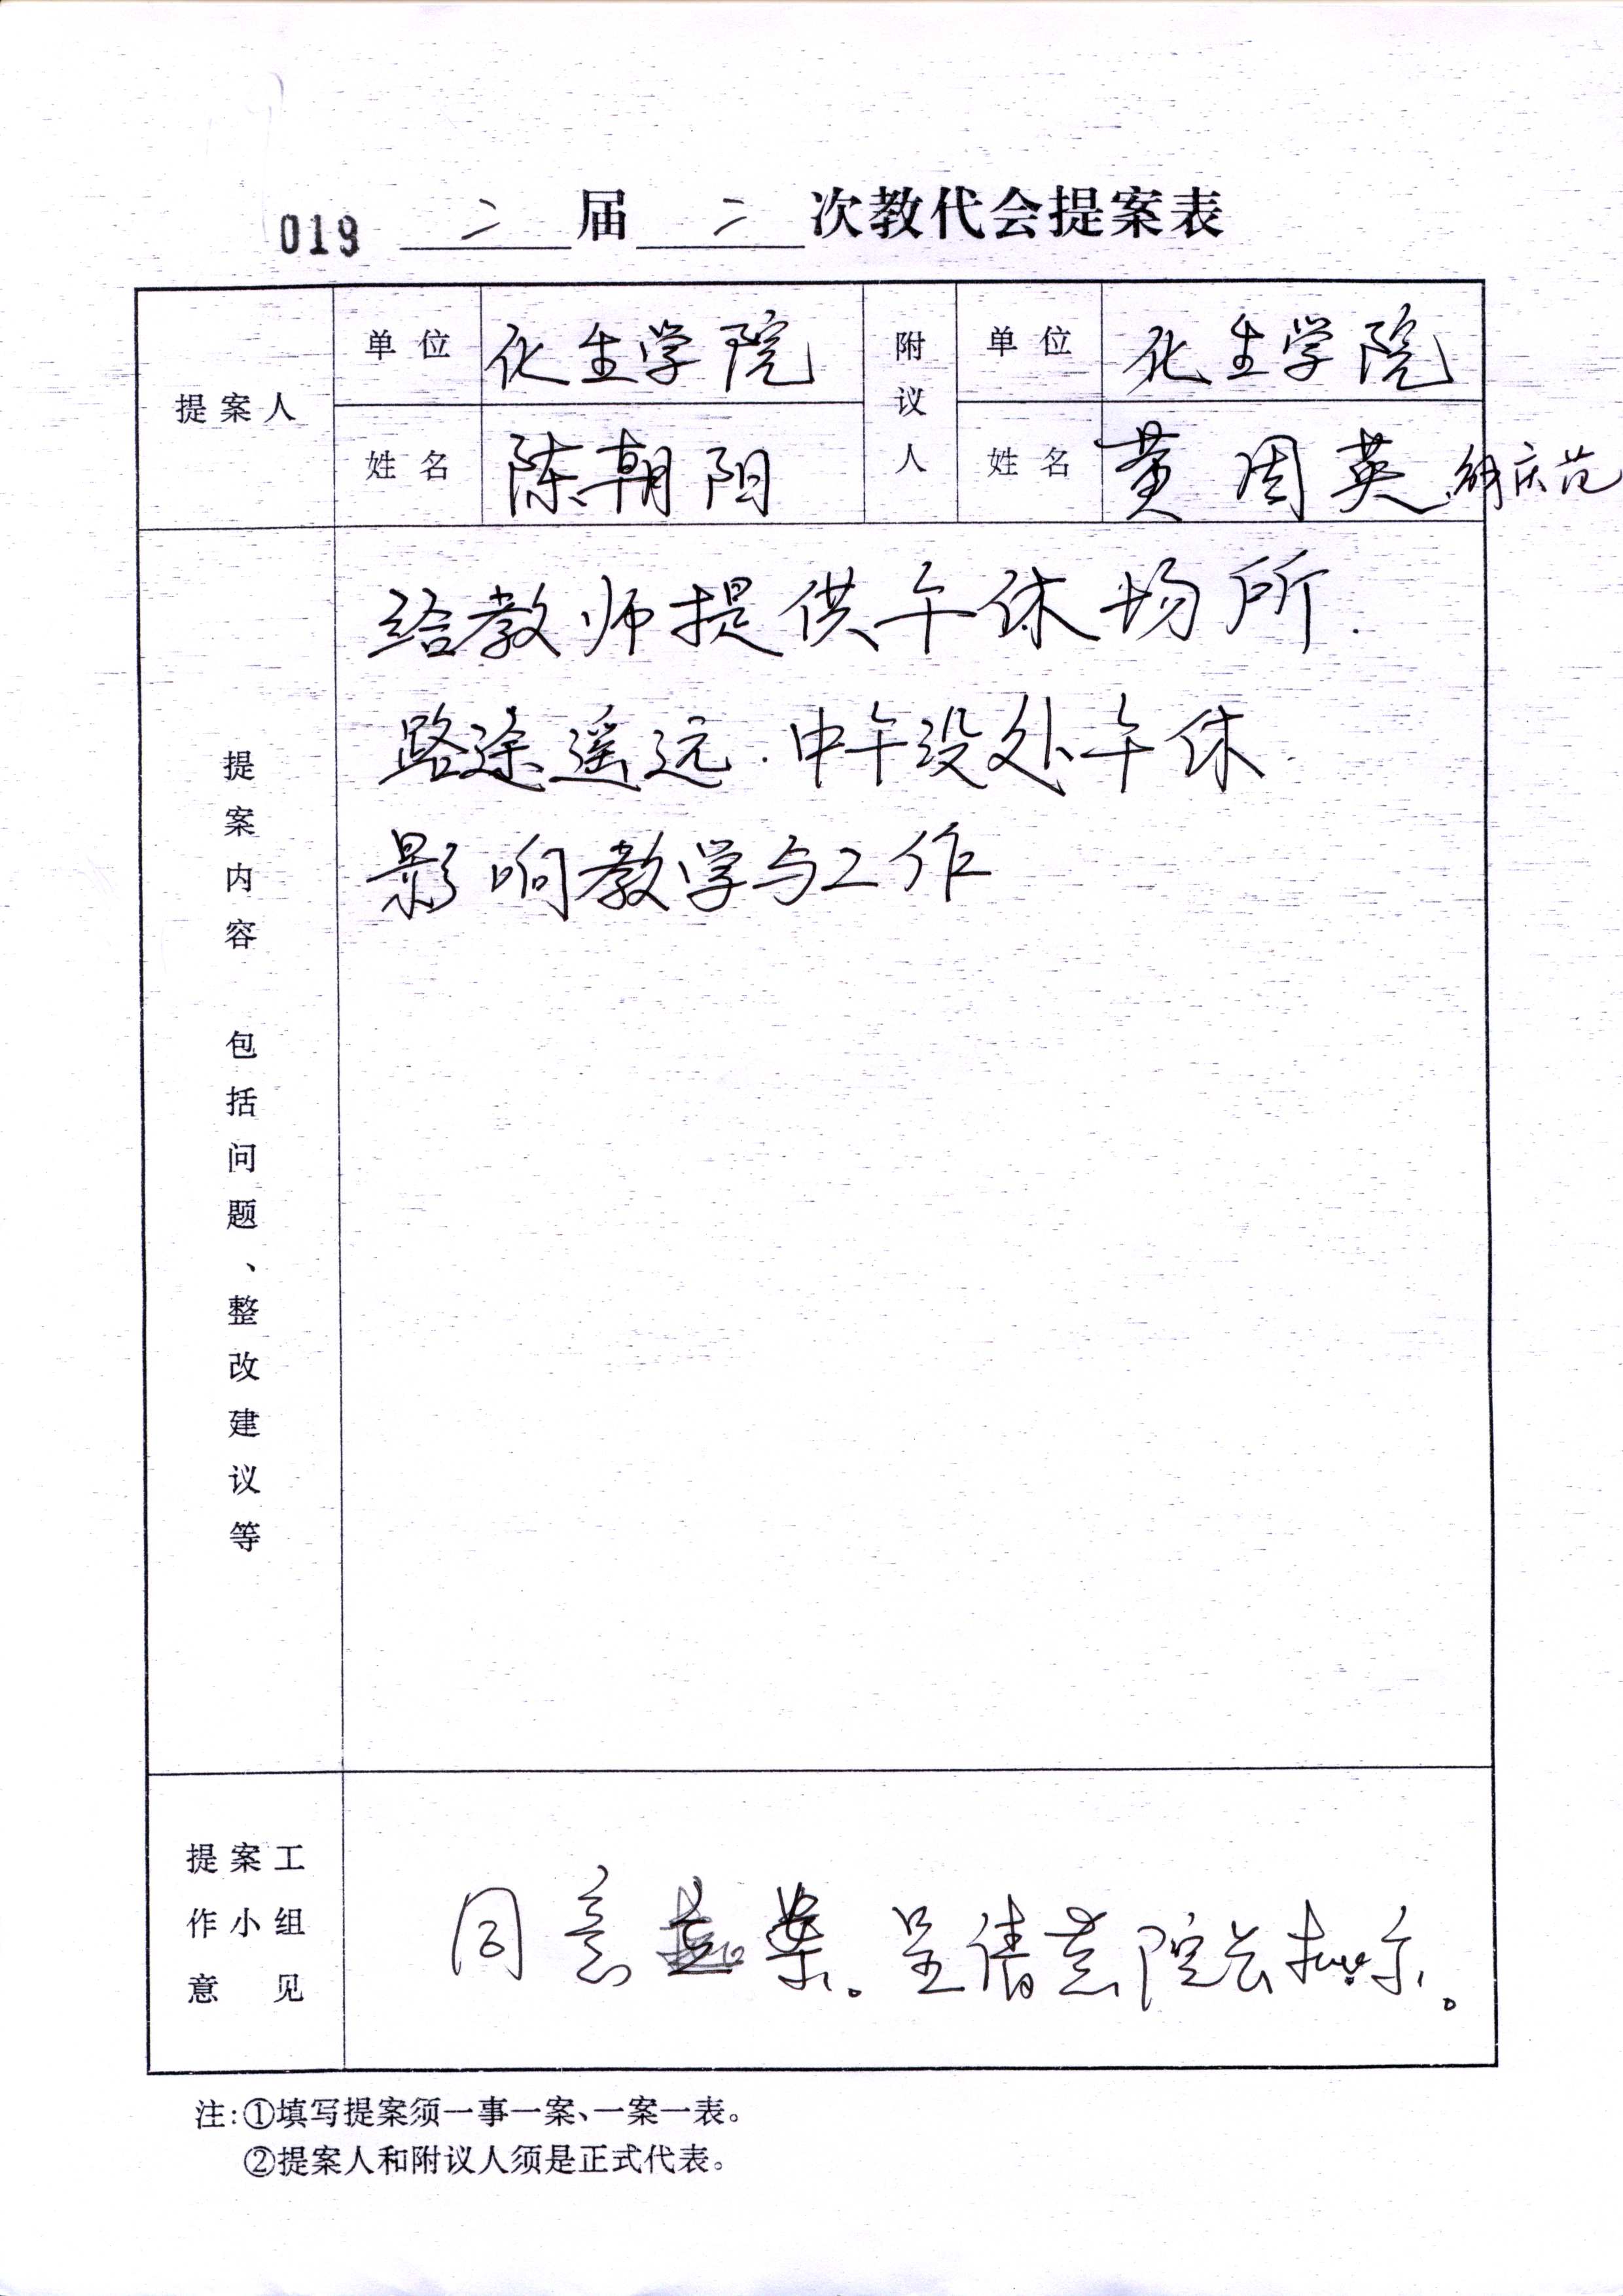 019 二届二次教代会提案表
提案人 单位 化生学院 附议人 单位 化生学院
姓名 陈朝阳 姓名 黄周英、庆范
提案内容 包括问题、整改建议等
给教师提供午休场所.
路途遥远.中午没处午休.
影响教学与工作
提案工作小组意见
同意立案。呈请黄院长批示。
注:①填写提案须一事一案、一案一表。
②提案人和附议人须是正式代表。